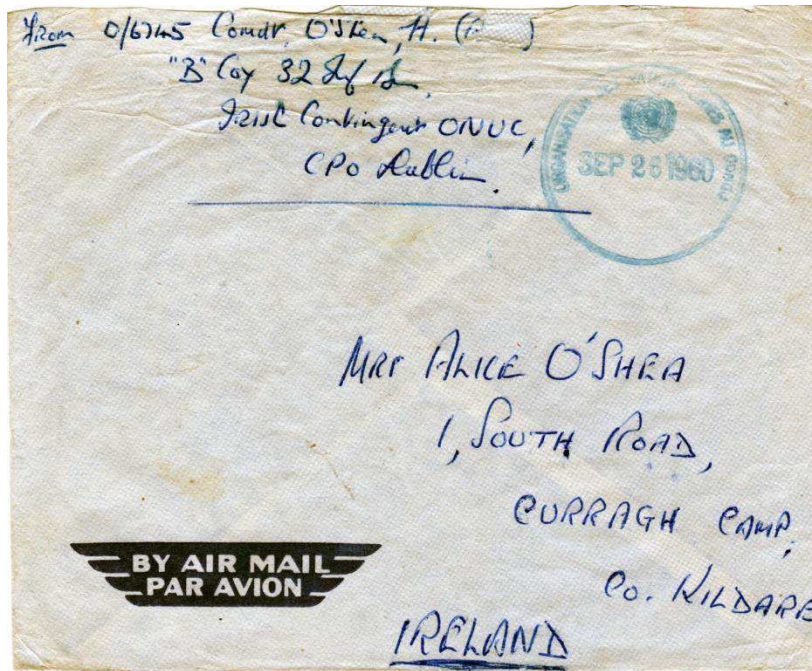 From 0/6745 Comdt. O'Shea, H.
"B" Coy 32 Inf Bn,
Irish Contingent ONUC,
CPO Dublin.
ORGANISATION DES NATIONS UNIES AU CONGO
SEP 26 1960
Mrs ALICE O'SHEA
1, SOUTH ROAD,
CURRAGH CAMP,
Co. KILDARE
IRELAND
BY AIR MAIL
PAR AVION